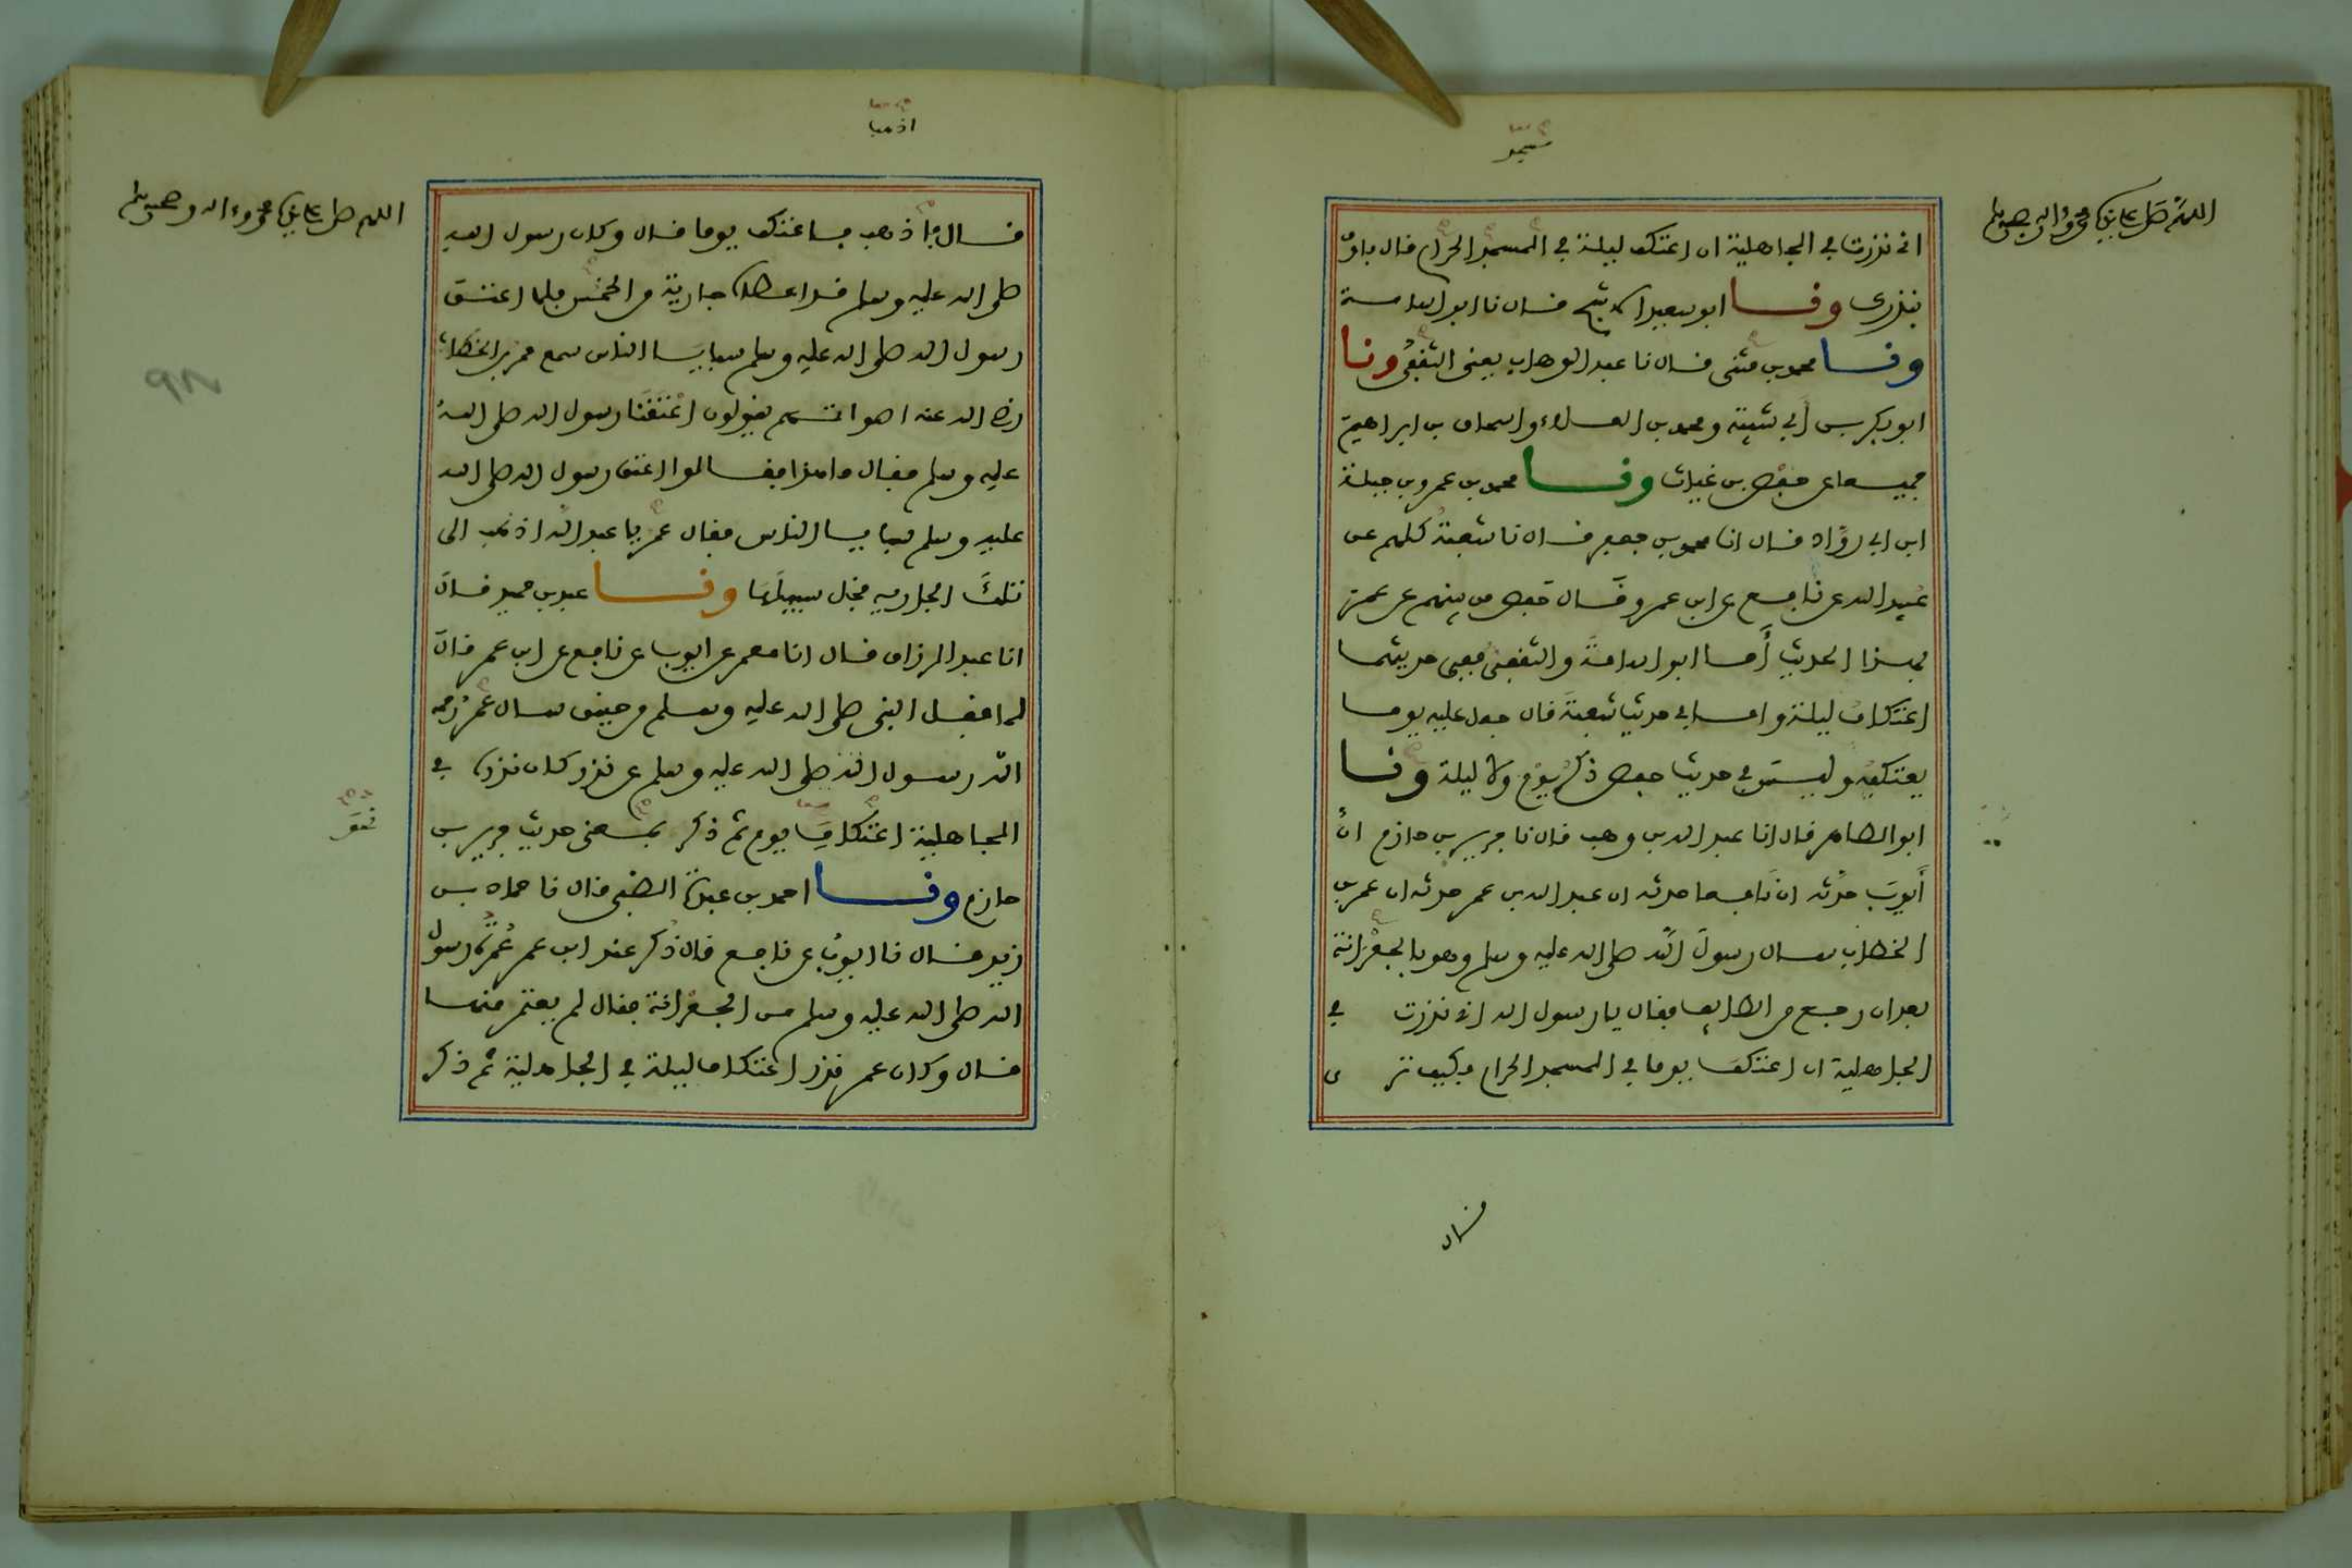 مسجد
اللهم صل على سيدنا محمد وءاله وصحبه وسلم
انى نذرت في الجاهلية ان اعتكف ليلة في المسجد الحرام فال باوب
بنذرك ونا ابو سعيد الاشج فال نا ابو اسامة
ونا محمد بن مثنى فال نا عبد الوهاب يعنى الثففي ونا
ابو بكر بن أبي شيبة ومحمد بن العلاء واسحاف بن ابراهيم
جميعا عن حفص بن غياث ونا محمد بن عمرو بن جبلة
ابن ابي روّاد فال انا محمد بن جعفر فال نا شعبة كلهم عن
عبيد الله عن نافع عن ابن عمر وفال حفص من بينهم عن عمر
بهذا الحديث أما ابو اسامة والثففي ففي حديثهما
اعتكاف ليلة واما في حديث شعبة فال جعل عليه يوما
يعتكفه وليس في حديث حفص ذكر يوم ولا ليلة ونا
ابو الطاهر فال انا عبد الله بن وهب فال نا جرير بن حازم ان
أيوب حدثه ان نافعا حدثه ان عبد الله بن عمر حدثه ان عمر بن
الخطاب سال رسول الله صلى الله عليه وسلم وهو بالجعرانة
بعد ان رجع من الطايف ففال يا رسول الله انى نذرت في
الجاهلية ان اعتكف يوما في المسجد الحرام فكيف ترى
فال
اذهبا
اللهم صل على سيدنا محمد وءاله وصحبه وسلم
فال اذهب فاعتكف يوما فال وكان رسول الله
صلى الله عليه وسلم فد اعطاه جارية من الخمس فلما اعتق
رسول الله صلى الله عليه وسلم سبايا الناس سمع عمر بن الخطاب
رضي الله عنه اصواتهم يفولون اعتفنا رسول الله صلى الله
عليه وسلم ففال ما هذا ففالوا اعتق رسول الله صلى الله
عليه وسلم سبايا الناس ففال عمر يا عبد الله اذهب الى
تلك الجارية فخل سبيلها ونا عبد بن حميد فال
انا عبد الرزاف فال انا معمر عن ايوب عن نافع عن ابن عمر فال
لما ففل النبي صلى الله عليه وسلم من حنين سال عمر
رسول الله صلى الله عليه وسلم عن نذر كان نذره في
الجاهلية اعتكاف يوم ثم ذكر بمعنى حديث جرير بن
حازم ونا احمد بن عبدة الضبي فال نا حماد بن
زيد فال نا ايوب عن نافع فال ذكر عند ابن عمر عمرة رسول
الله صلى الله عليه وسلم من الجعرانة ففال لم يعتمر منها
فال وكان عمر نذر اعتكاف ليلة في الجاهلية ثم ذكر